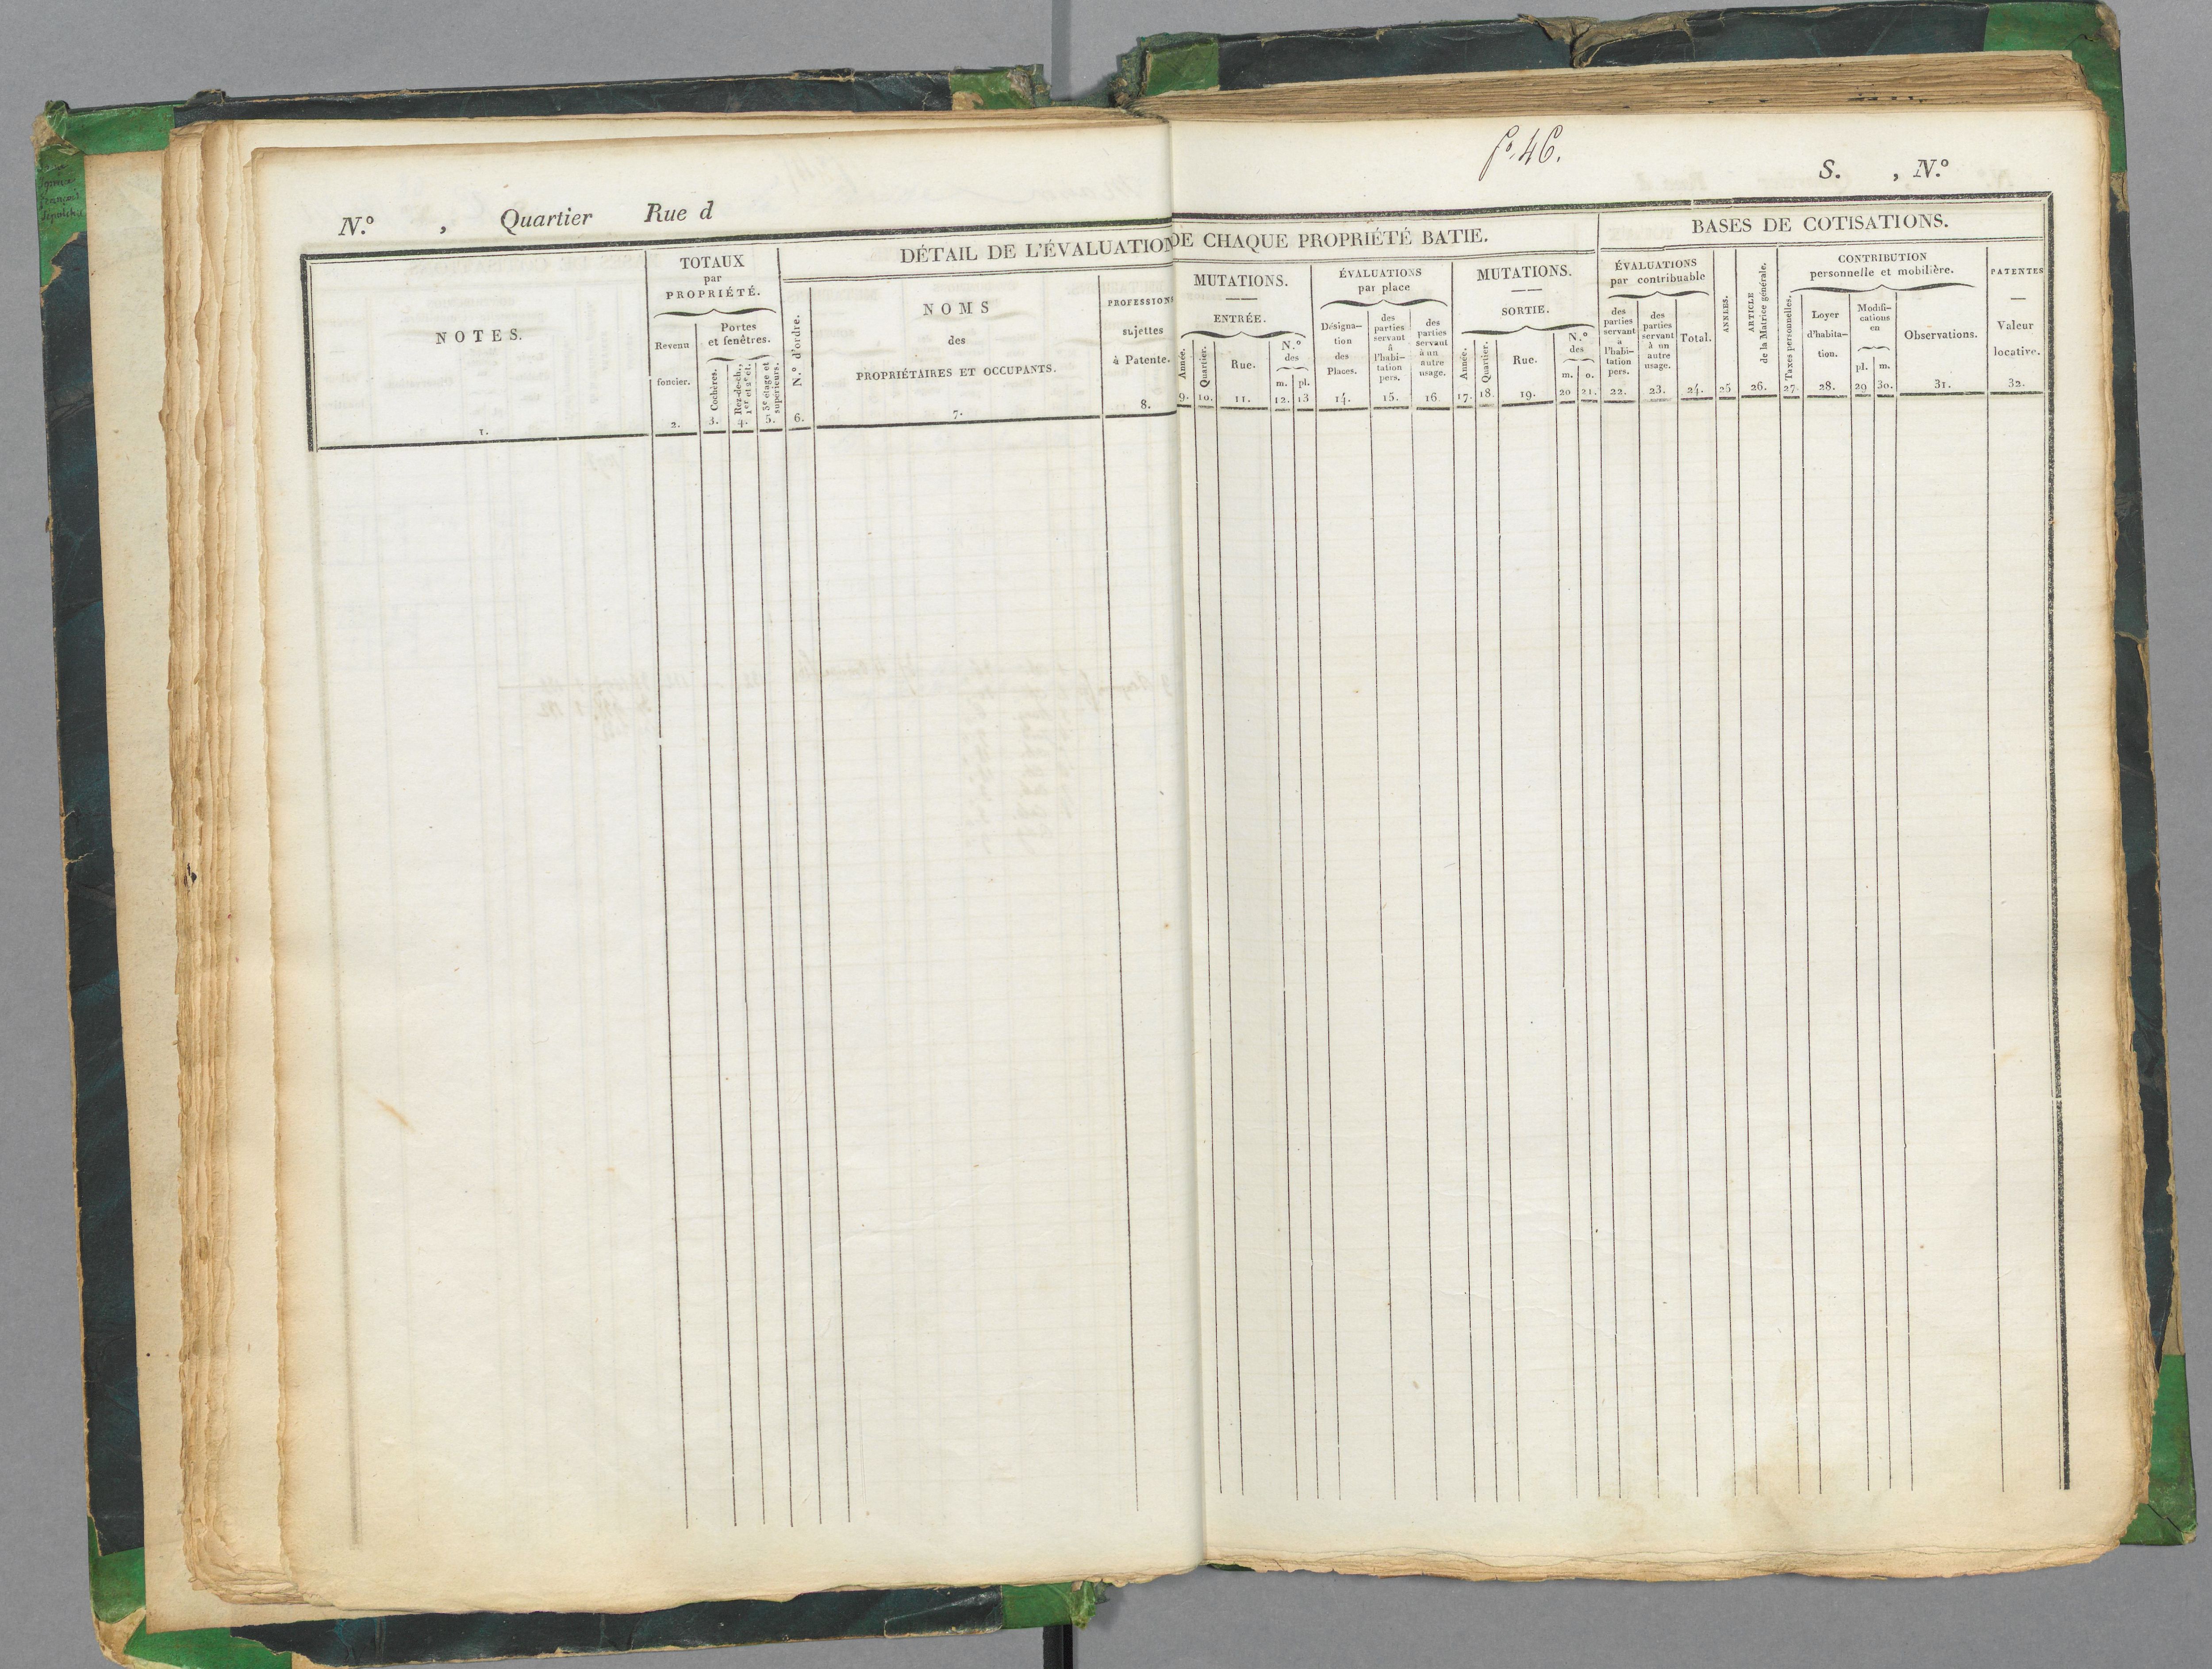 fo. 46.
N.o , Quartier Rue d
S. , N.o
DÉTAIL DE L'ÉVALUATION DE CHAQUE PROPRIÉTÉ BATIE.
BASES DE COTISATIONS.
NOTES.
1.
TOTAUX
par
PROPRIÉTÉ.
Revenu
foncier.
2.
Portes
et fenêtres.
Cochères.
3.
Rez-de-ch.,
1er et 2e et.
4.
3e étage et
supérieurs.
5.
N.o d'ordre.
6.
NOMS
des
PROPRIÉTAIRES ET OCCUPANTS.
7.
PROFESSIONS
sujettes
à Patente.
8.
MUTATIONS.
ENTRÉE.
Année.
9.
Quartier.
10.
Rue.
11.
N.o
des
m. pl.
12. 13
ÉVALUATIONS
par place
Désigna-
tion
des
Places.
14.
des
parties
servant
à
l'habi-
tation
pers.
15.
des
parties
servant
à un
autre
usage.
16.
MUTATIONS.
SORTIE.
Année.
17.
Quartier.
18.
Rue.
19.
N.o
des
m. o.
20 21.
ÉVALUATIONS
par contribuable
des
parties
servant
à
l'habi-
tation
pers.
22.
des
parties
servant
à un
autre
usage.
23.
Total.
24.
ANNÉES.
25
ARTICLE
de la Matrice générale.
26.
CONTRIBUTION
personnelle et mobilière.
Taxes personnelles.
27.
Loyer
d'habita-
tion.
28.
Modifi-
cations
en
pl. m.
29 30.
Observations.
31.
PATENTES
Valeur
locative.
32.